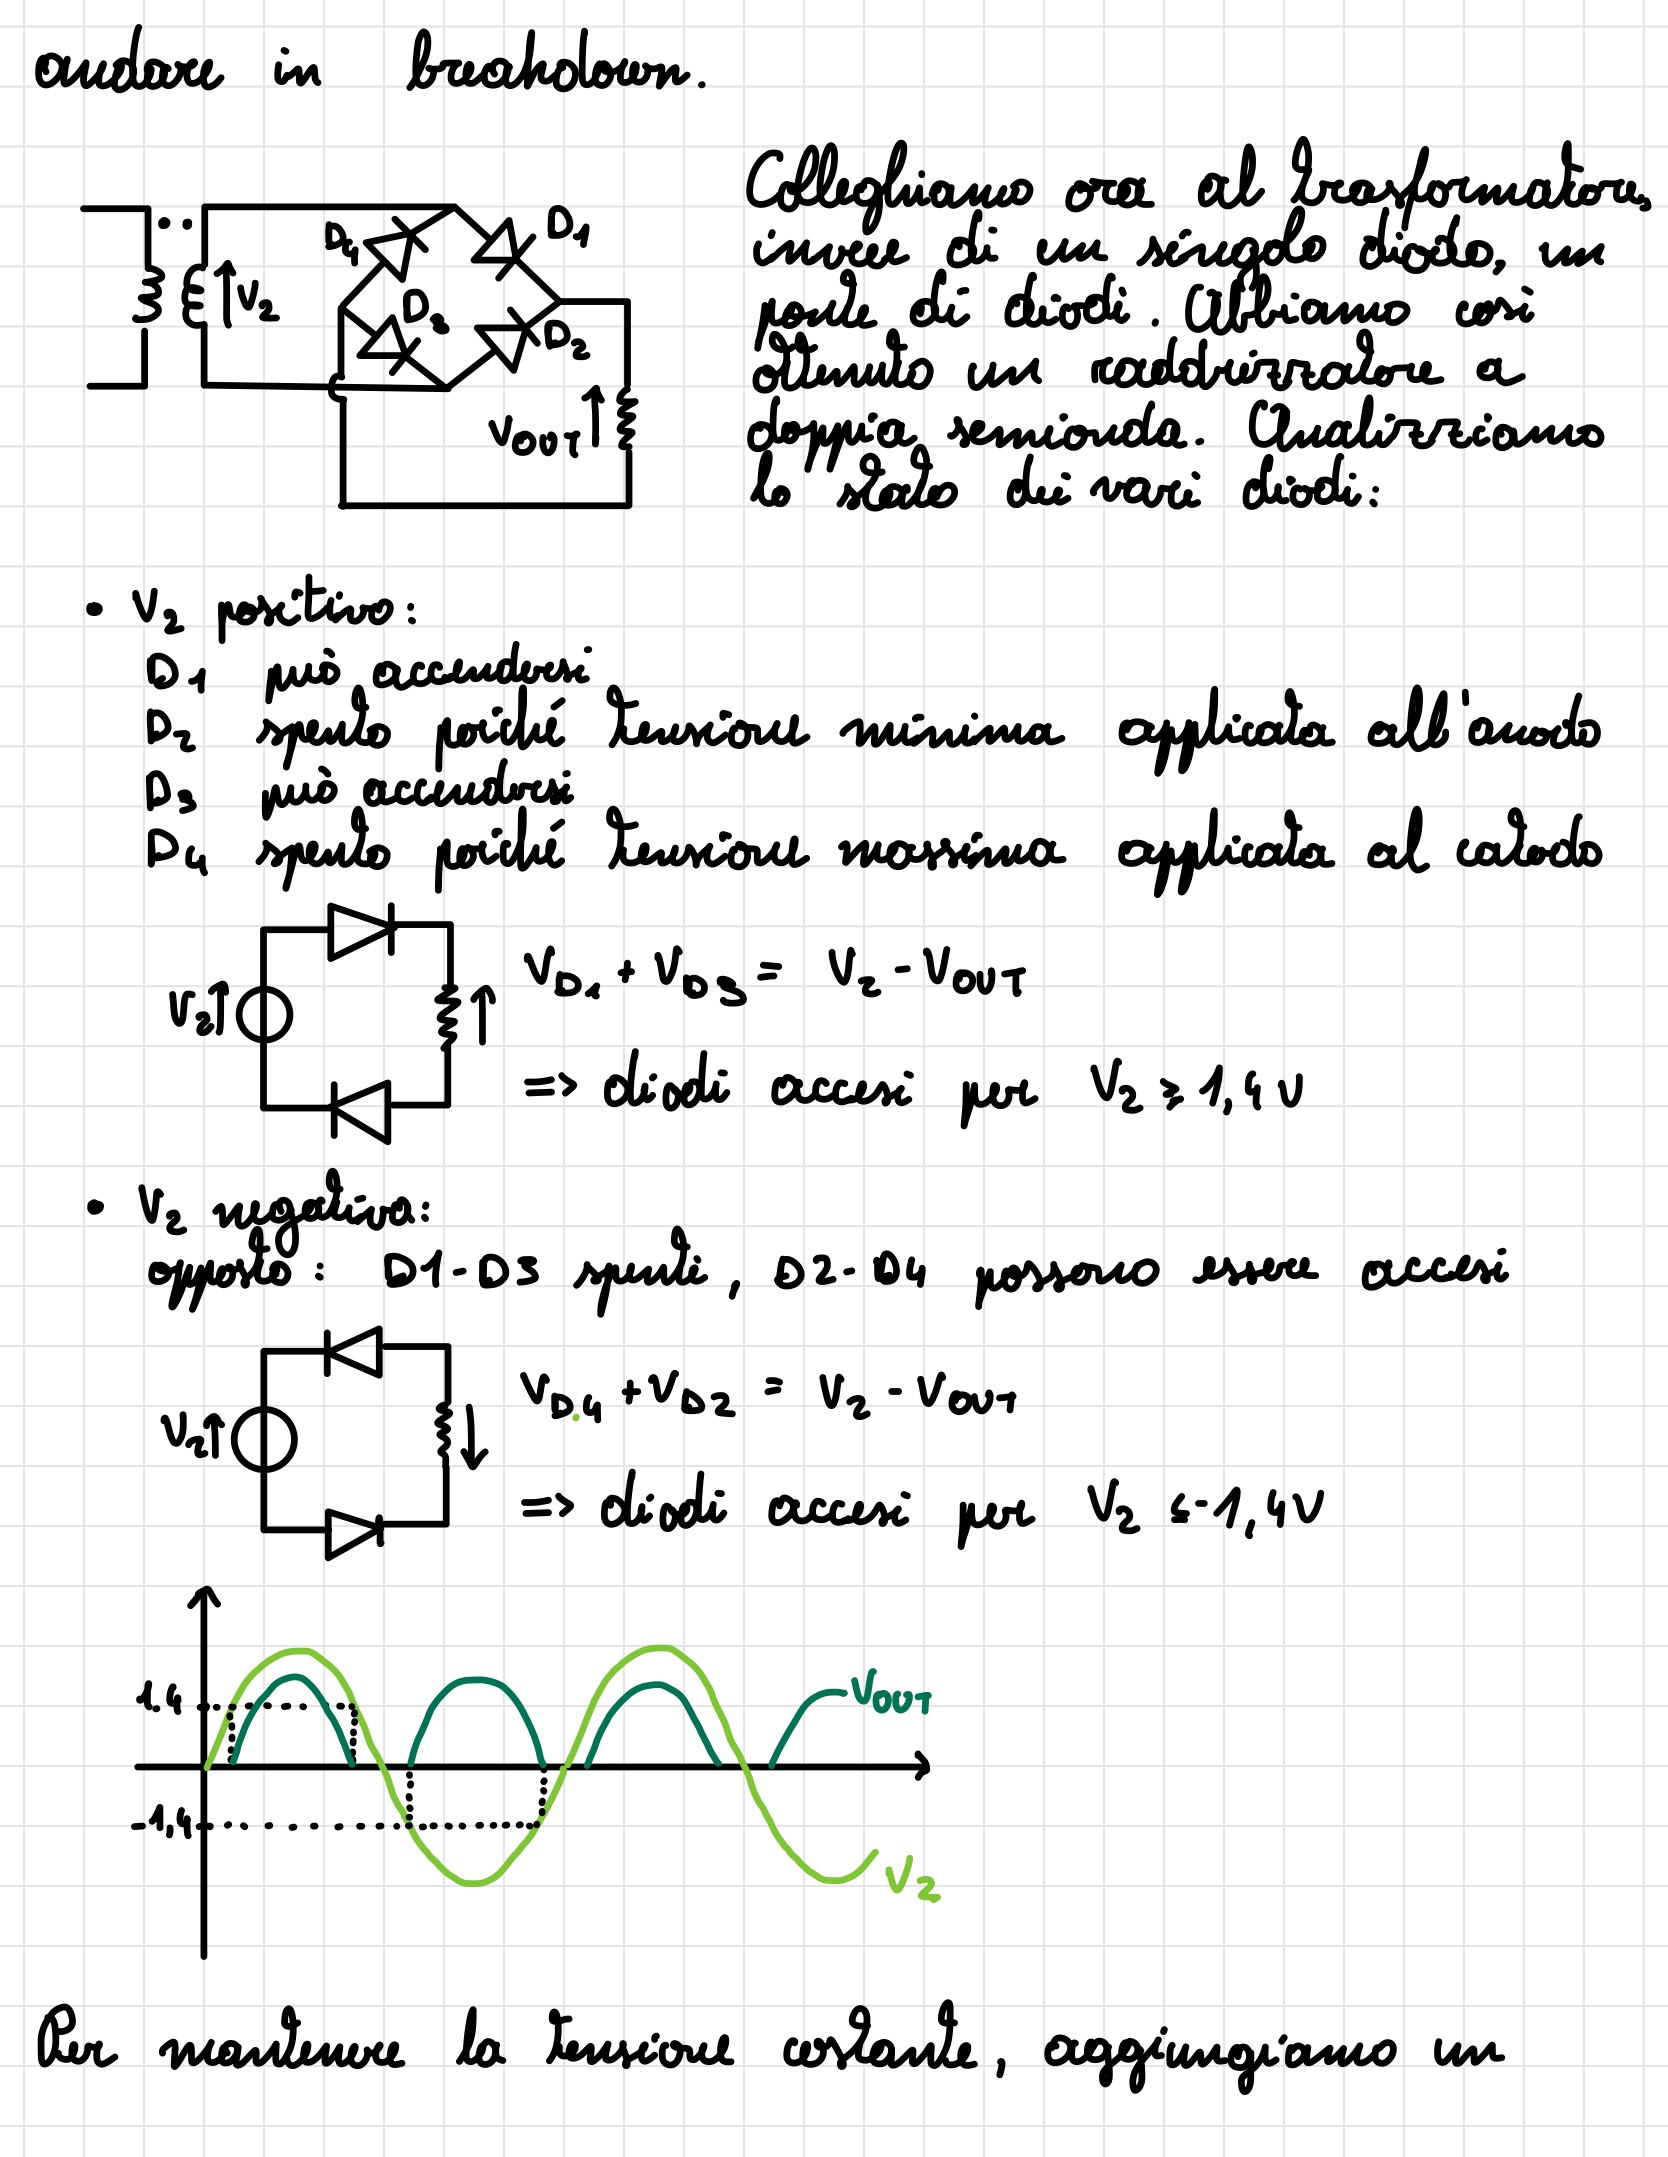 andare in breakdown.
Colleghiamo ora al trasformatore,
invece di un singolo diodo, un
ponte di diodi. Abbiamo così
ottenuto un raddrizzatore a
doppia semionda. Analizziamo
lo stato dei vari diodi:
D4
D1
V2
D3
D2
VOUT
• V2 positivo:
D1 può accendersi
D2 spento poiché tensione minima applicata all'anodo
D3 può accendersi
D4 spento poiché tensione massima applicata al catodo
V2
VD1 + VD3 = V2 - VOUT
=> diodi accesi per V2 ≥ 1,4 V
• V2 negativa:
opposto: D1-D3 spenti, D2-D4 possono essere accesi
V2
VD4 + VD2 = V2 - VOUT
=> diodi accesi per V2 ≤ -1,4 V
1,4
VOUT
-1,4
V2
Per mantenere la tensione costante, aggiungiamo un